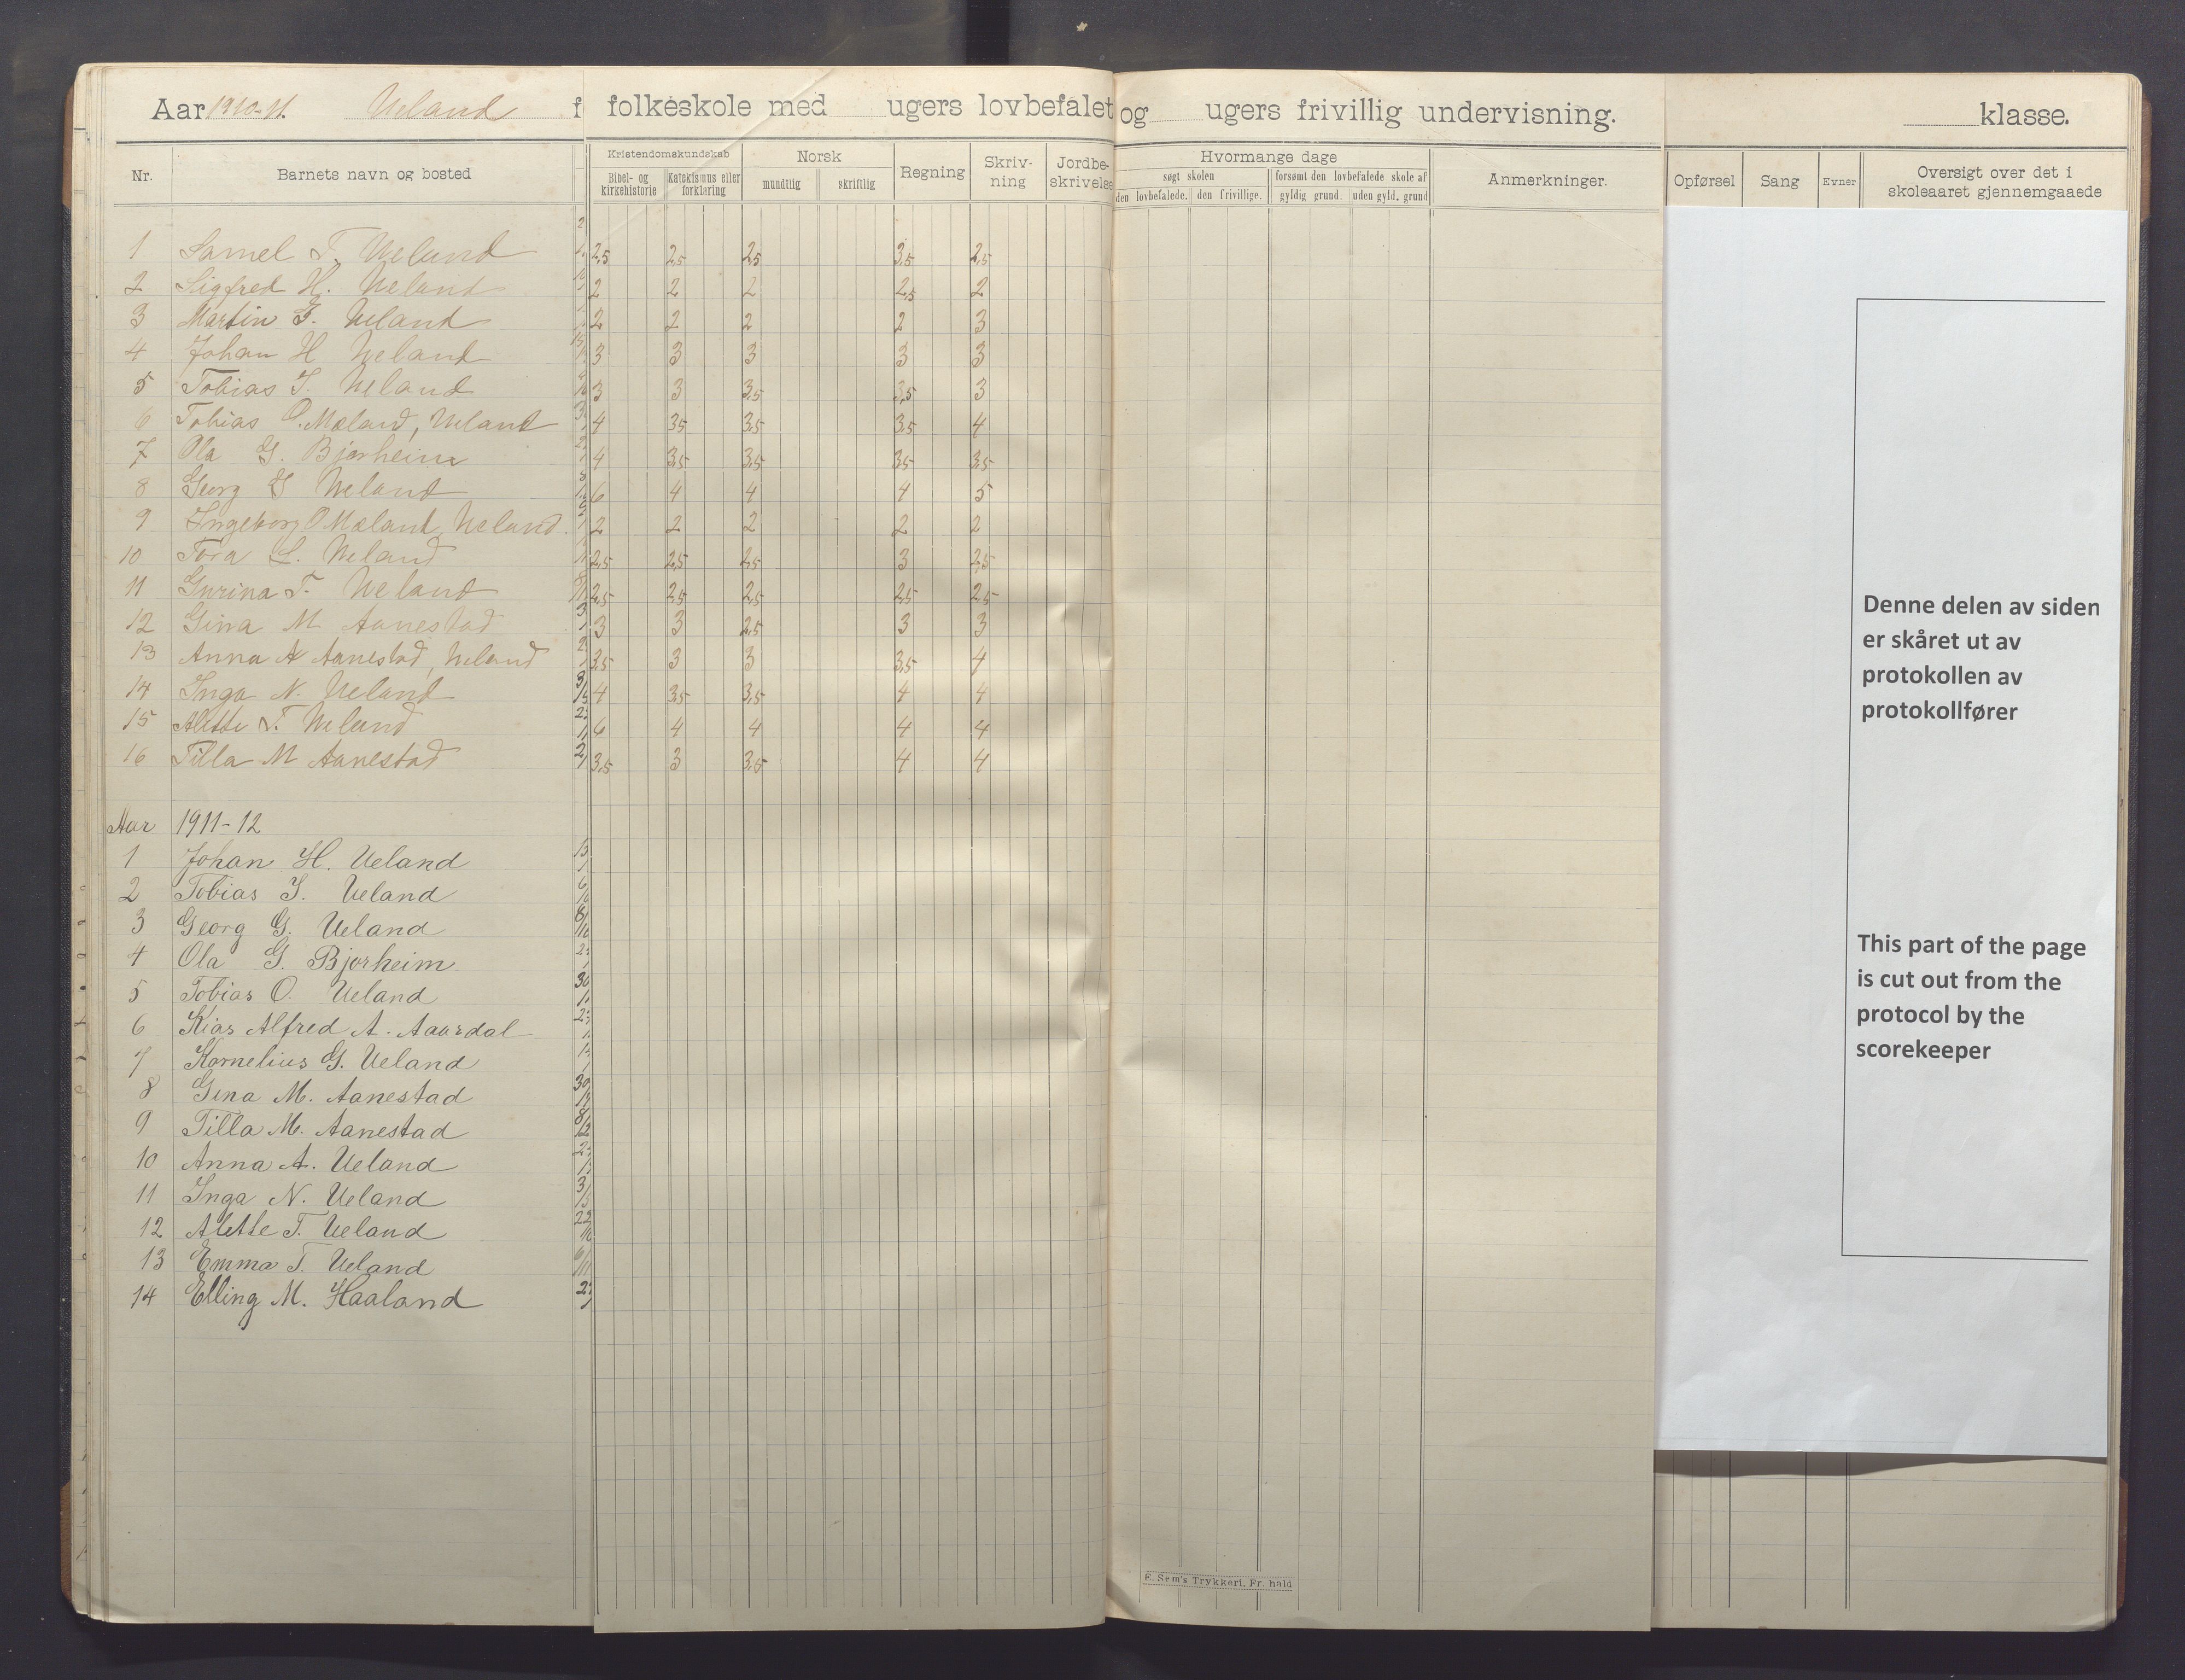 Aar 1910-11. Ueland f folkeskole med ugers lovbefalet og ugers frivillig undervisning. klasse.
Nr. Barnets navn og bosted Kristendomskundskab Bibel- og kirkehistorie Katekismus eller forklaring Norsk mundtlig skriftlig Regning Skriv-ning Jordbe-skrivelse Hvormange dage søgt skolen den lovbefalede. den frivillige. forsømt den lovbefalede skole af gyldig grund. uden gyld. grund Anmerkninger. Opførsel Sang Evner Oversigt over det i skoleaaret gjennemgaaede
1 Samel T. Ueland 2,5 2,5 2,5 3,5 2,5
2 Sigfred H. Ueland 2 2 2 2,5 2
3 Martin G. Ueland 2 2 2 2 3
4 Johan H Ueland 3 3 3 3 3
5 Tobias I. Ueland 3 3 3,5 3,5 3
6 Tobias O. Mæland, Ueland 4 3,5 3,5 3,5 4
7 Ola G. Bjorheim 4 3,5 3,5 3,5 3,5
8 Georg G Ueland 6 4 4 4 5
9 Ingeborg O Mæland, Ueland. 2 2 2 2 2
10 Tora L. Ueland 2,5 2,5 2,5 3 2,5
11 Gurina T. Ueland 2,5 2,5 2,5 2,5 2,5
12 Gina M Aanestad 3 3 2,5 3 3
13 Anna A Aanestad, Ueland 3,5 3 3 3,5 4
14 Inga N. Ueland 4 3,5 3,5 4 4
15 Alette T. Ueland 6 4 4 4 4
16 Tilla M Aanestad 3,5 3 3,5 4 4
Aar 1911-12
1 Johan H. Ueland
2 Tobias I. Ueland
3 Georg G. Ueland
4 Ola G. Bjorheim
5 Tobias O. Ueland
6 Kias Alfred A. Aaursdal
7 Kornelius G. Ueland
8 Gina M. Aanestad
9 Tilla M. Aanestad
10 Anna A. Ueland
11 Inga N. Ueland
12 Alette T. Ueland
13 Emma T. Ueland
14 Elling M. Haaland
E. Sem's Trykkeri, Fr. hald
Denne delen av siden
er skåret ut av
protokollen av
protokollfører
This part of the page
is cut out from the
protocol by the
scorekeeper